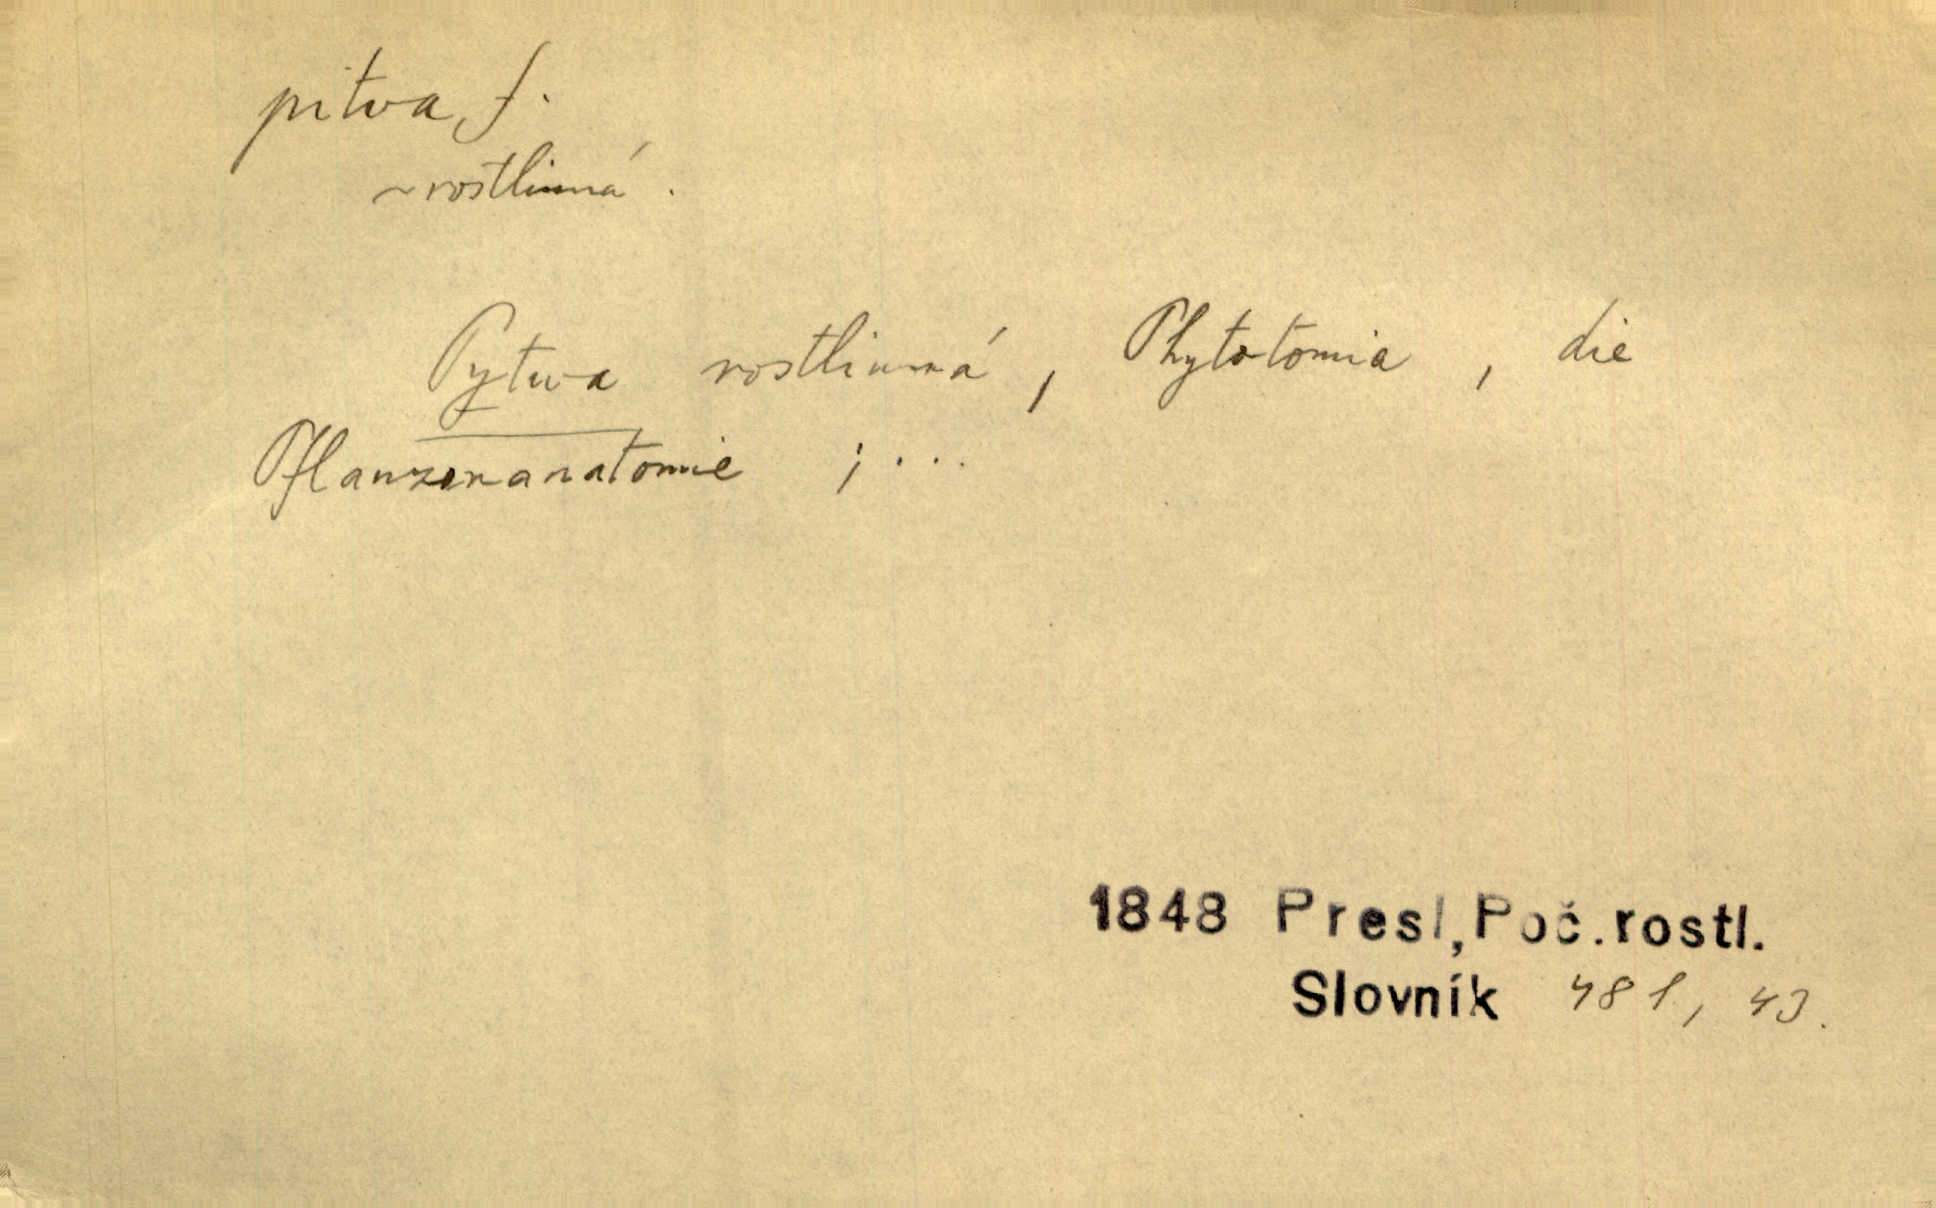 pitva, f.
~ rostlinná.
Pytwa rostlinná, Phytotomia, die
Pflanzenanatomie ; ...
1848 Presl, Poč.rostl.
Slovník 481, 43.